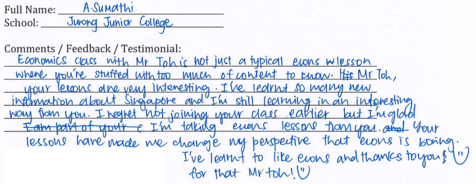 Full Name: A.Sumathi
School: Jurong Junior College
Comments / Feedback / Testimonial:
Economics class with Mr Toh is not just a typical econs lesson
where you're stuffed with too much of content to know. Mr Toh,
your lessons are very interesting. I've learnt so many new
information about Singapore and I'm still learning in an interesting
way from you. I regret not joining your class earlier but I'm glad
I am part of your I'm taking econs lessons from you. Your
lessons have made me change my perspective that econs is boring.
I've learnt to like econs and thanks to you
for that Mr toh!